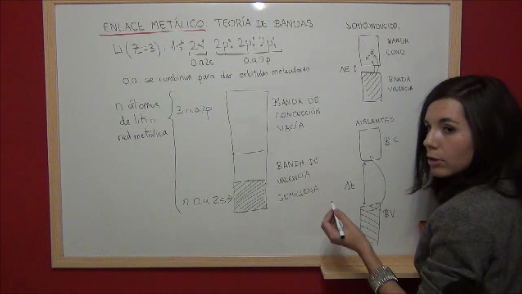 ENLACE METÁLICO. TEORÍA DE BANDAS
Li (Z=3): 1s² 2s¹ 2p⁰ 2p⁰ 2p⁰
o.a 2s o.a 2p
o.a se combinan para dar orbitales moleculares
n átomos
de litio
red metálica
3n o.a 2p
n o.a 2s
BANDA DE
CONDUCCIÓN
VACÍA
BANDA DE
VALENCIA
SEMILLENA
SEMICONDUCTOR
BANDA
COND
ΔE
BANDA
VALENCIA
AISLANTES
B C
ΔE
BV